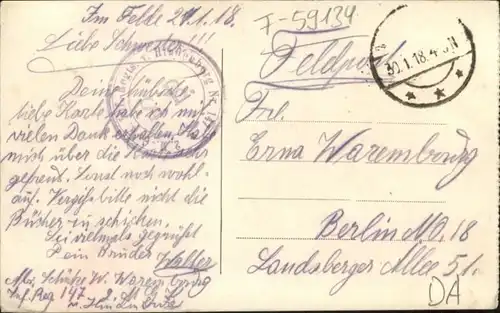 Im Felde 29.1.18.
F-59124
Liebe Schwester!!!
Feldpost
30.1.18.4-5N
Deine hübsche
liebe Karte habe ich mit
vielen Dank erhalten. Hab
mich über die Karte sehr
gefreut. Sonst noch wohl-
auf. Vergiß bitte nicht die
Bücher zu schicken.
Sei vielmals gegrüßt
Dein Bruder Walter
Abs. Schütze W. Warembourg
Inf. Reg 147 2. M.G.K.
v. Hindenburg
Frl.
Erna Warembourg
Berlin N.O. 18
Landsberger Allee 51.
DA